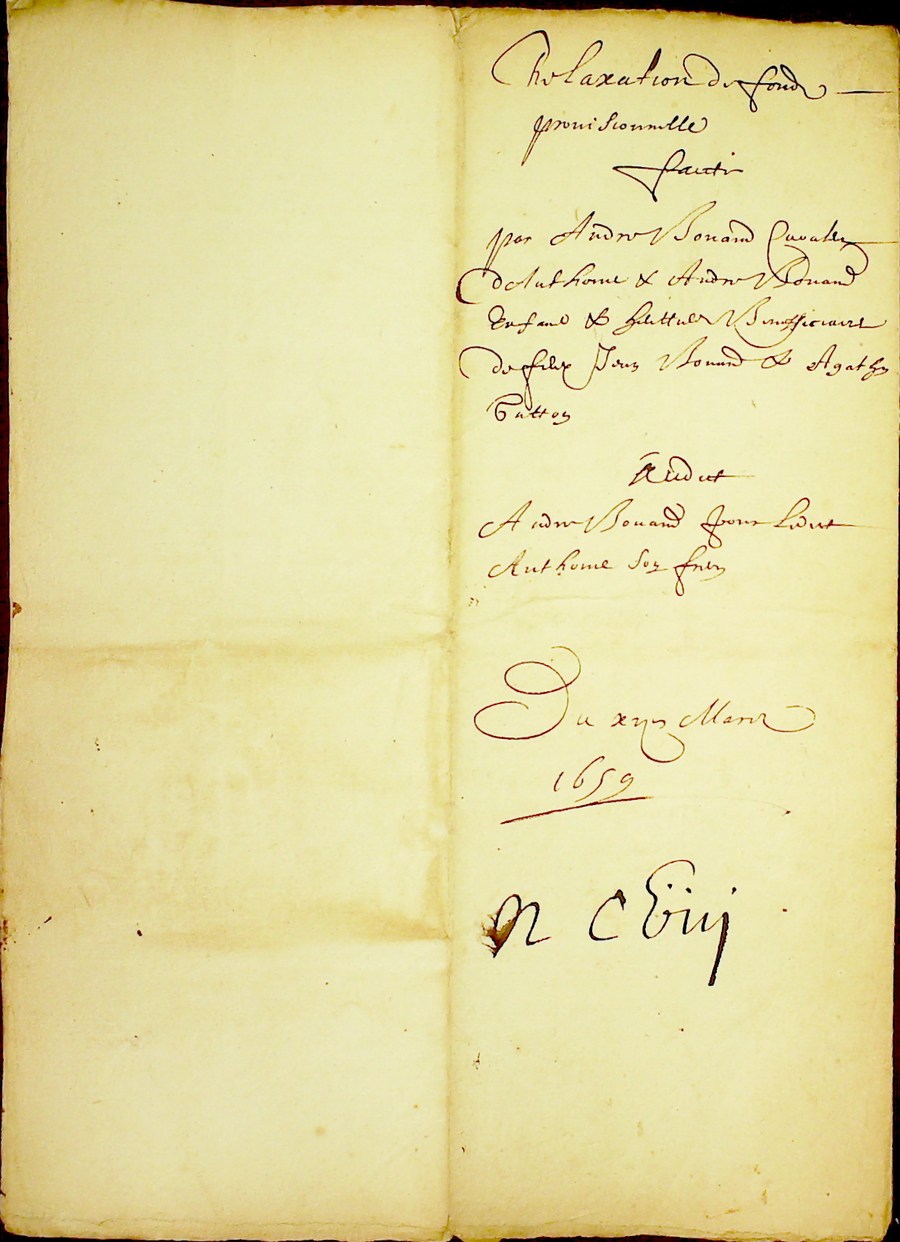 Relaxation de fondz
provisionnelle
faicte
par Andre Bonard
d'Anthoine & Andre Bonard
Enfans & Beneficiaires
de feux Jean Bonard & Agathe
Button
Audict
Andre Bonard pour ledict
Anthoine son frere
Du xvje Marz
1659
N C Liiij